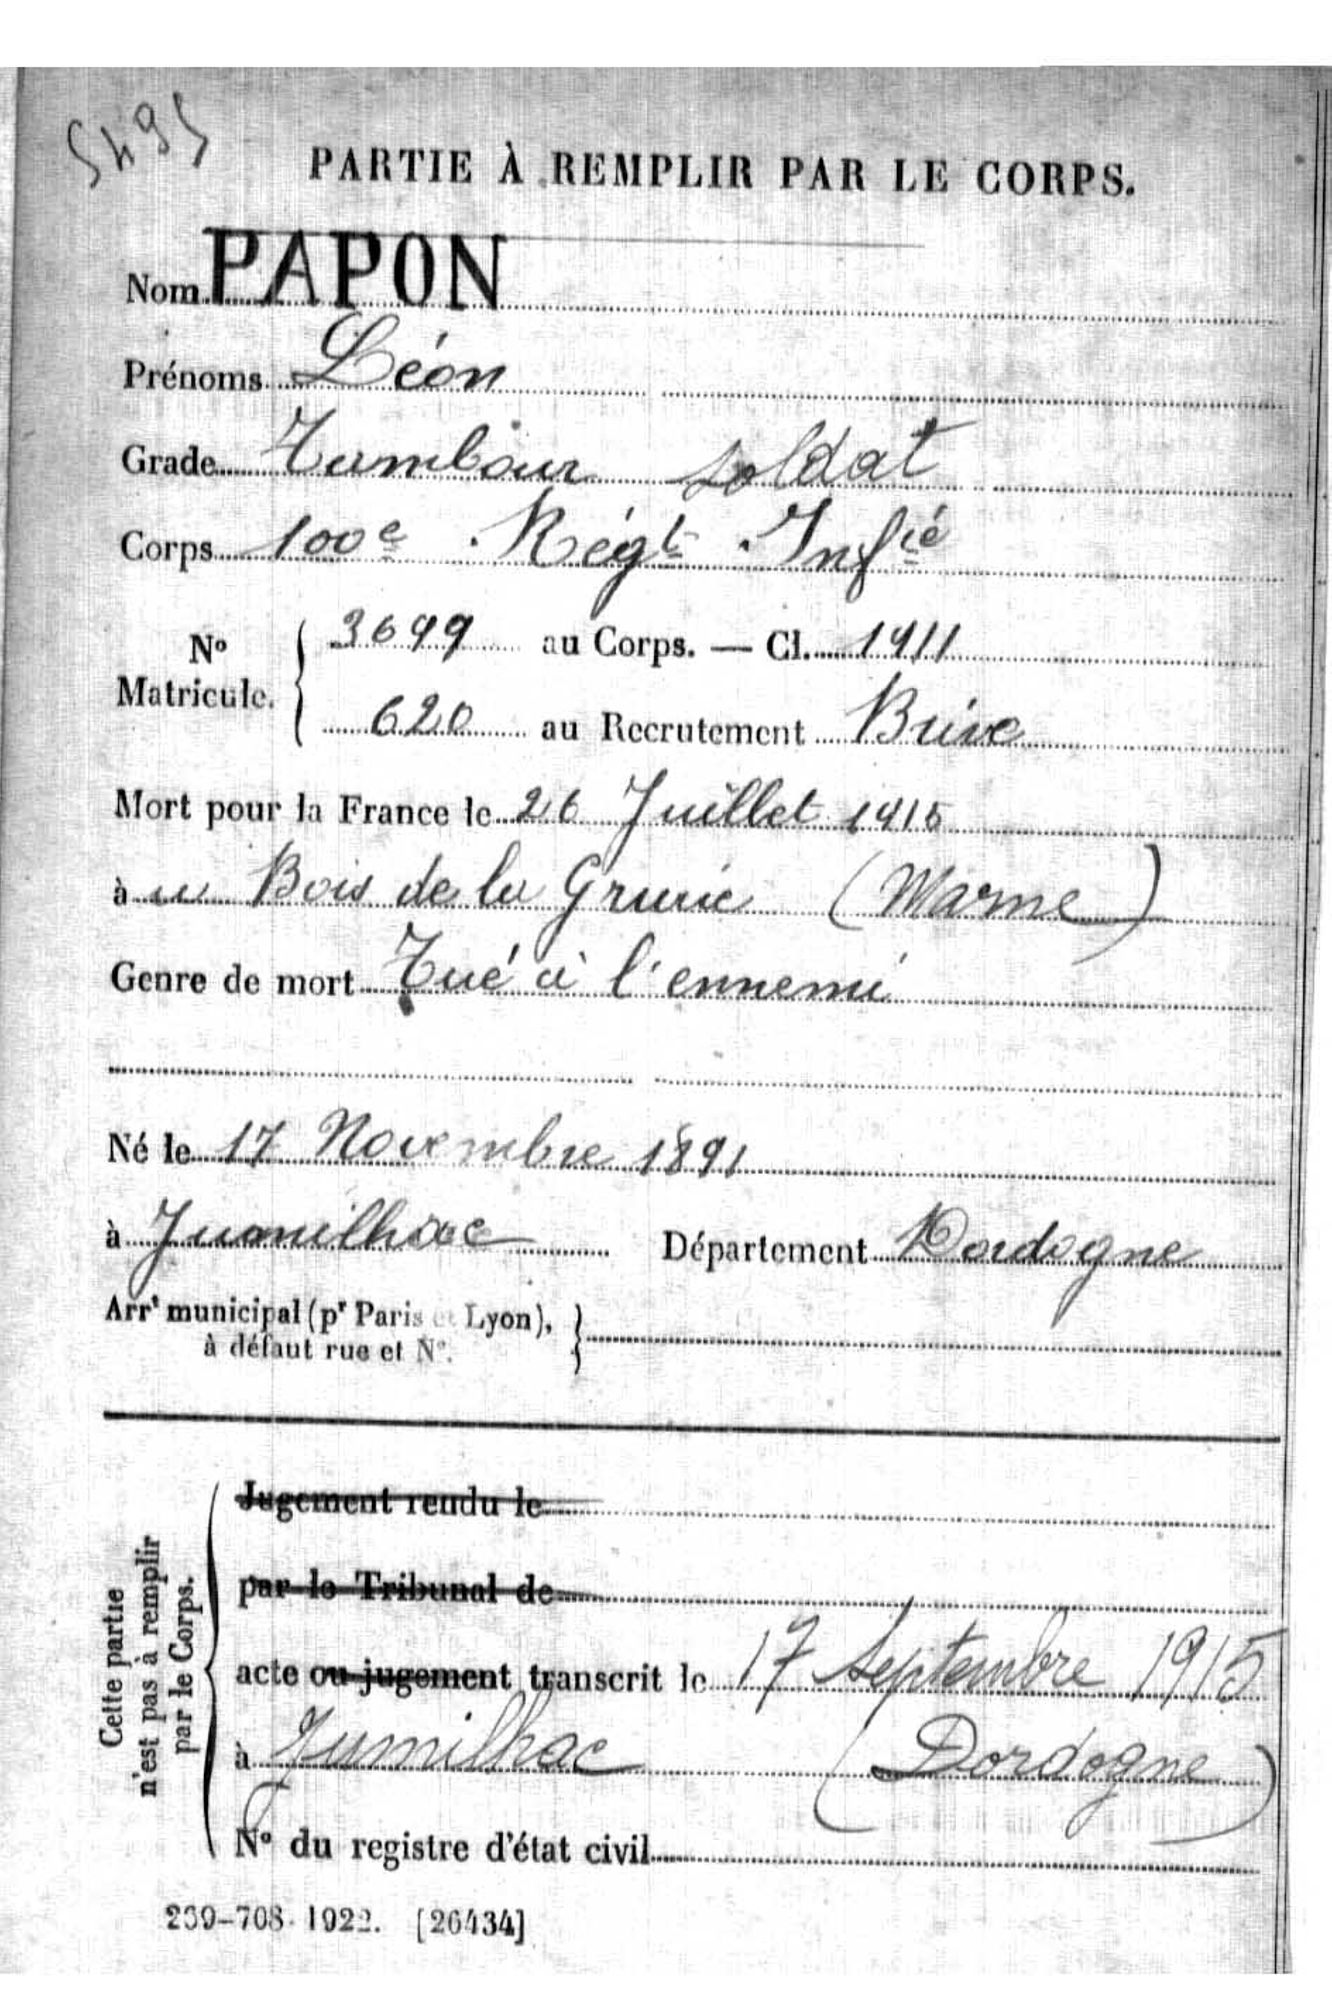 5495
PARTIE À REMPLIR PAR LE CORPS.
Nom PAPON
Prénoms Léon
Grade Tambour soldat
Corps 100e Régt Infie
No Matricule. { 3699 au Corps. — Cl. 1911
620 au Recrutement Brive
Mort pour la France le 26 Juillet 1915
à u Bois de la Grurie (Marne)
Genre de mort Tué à l'ennemi
Né le 17 Novembre 1891
à Jumilhac Département Dordogne
Arrt municipal (pr Paris et Lyon), }
à défaut rue et No.
Cette partie
n'est pas à remplir
par le Corps.
Jugement rendu le
par le Tribunal de
acte ou jugement transcrit le 17 Septembre 1915
à Jumilhac (Dordogne)
No du registre d'état civil
239-708. 1922. [26434]